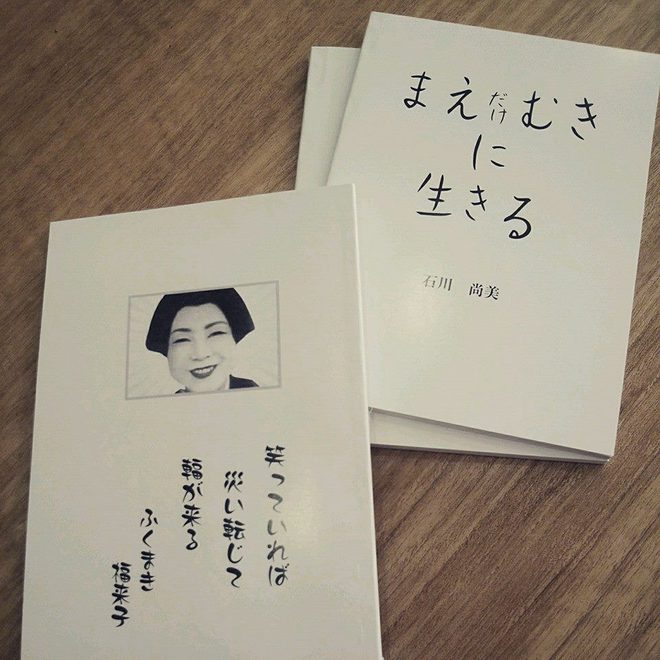 まえだけむき
に
生きる
石川 尚美
笑っていれば
災い転じて
輻が来る
ふくまき
福来子